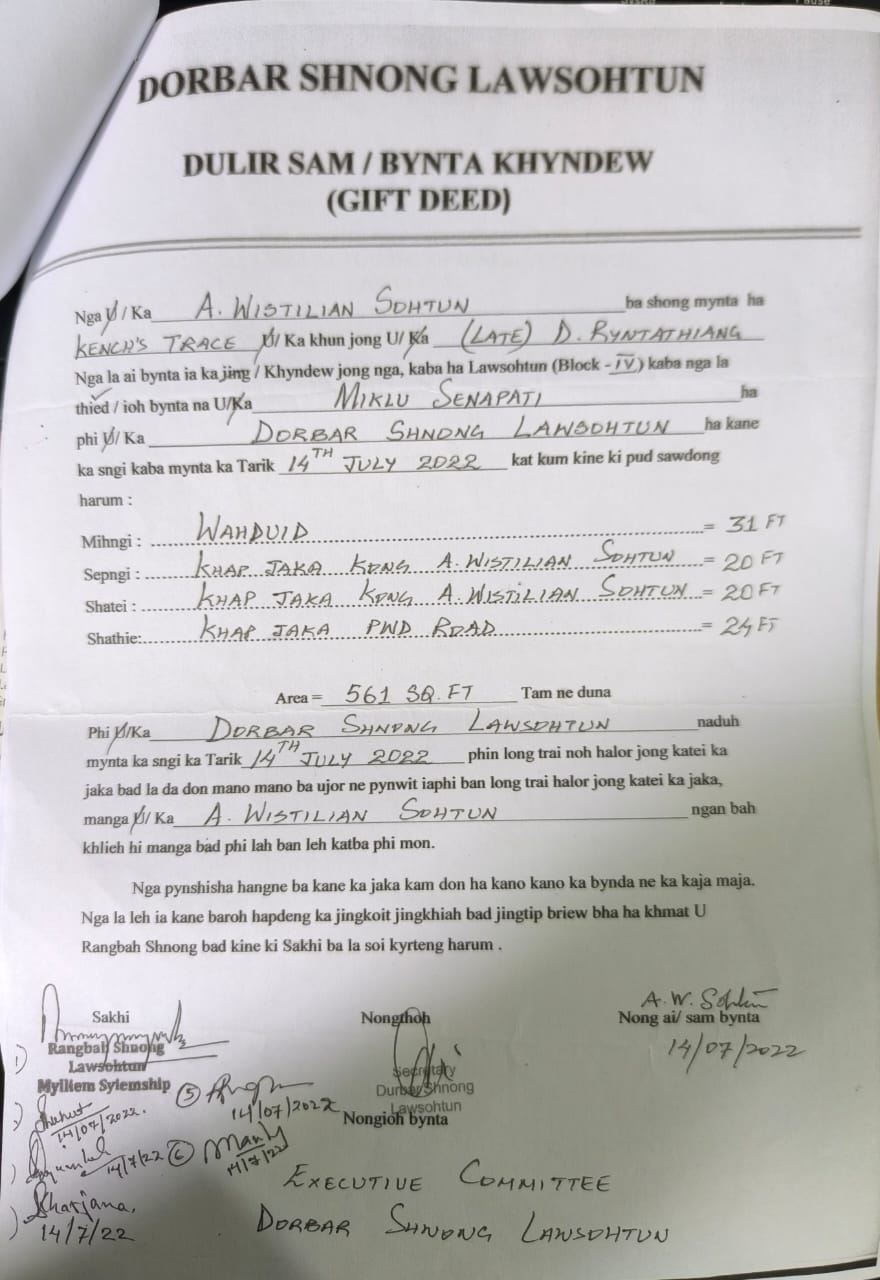 DORBAR SHNONG LAWSOHTUN
DULIR SAM / BYNTA KHYNDEW
(GIFT DEED)
Nga U/ Ka A. WISTILIAN SOHTUN ba shong mynta ha
KENCH'S TRACE U/ Ka khun jong U/ Ka (LATE) D. RYNTATHIANG
Nga la ai bynta ia ka jing / Khyndew jong nga, kaba ha Lawsohtun (Block - IV) kaba nga la
thied / ioh bynta na U/Ka MIKLU SENAPATI ha
phi U/ Ka DORBAR SHNONG LAWSOHTUN ha kane
ka sngi kaba mynta ka Tarik 14TH JULY 2022 kat kum kine ki pud sawdong
harum :
Mihngi : WAHDUID = 31 FT
Sepngi : KHAP JAKA KONG A. WISTILIAN SOHTUN = 20 FT
Shatei : KHAP JAKA KONG A. WISTILIAN SOHTUN = 20 FT
Shathie: KHAP JAKA PWD ROAD = 24 FT
Area = 561 SQ. FT Tam ne duna
Phi U/Ka DORBAR SHNONG LAWSOHTUN naduh
mynta ka sngi ka Tarik 14TH JULY 2022 phin long trai noh halor jong katei ka
jaka bad la da don mano mano ba ujor ne pynwit iaphi ban long trai halor jong katei ka jaka,
manga U/ Ka A. WISTILIAN SOHTUN ngan bah
khlieh hi manga bad phi lah ban leh katba phi mon.
Nga pynshisha hangne ba kane ka jaka kam don ha kano kano ka bynda ne ka kaja maja.
Nga la leh ia kane baroh hapdeng ka jingkoit jingkhiah bad jingtip briew bha ha khmat U
Rangbah Shnong bad kine ki Sakhi ba la soi kyrteng harum .
A. W. Sohtun
Sakhi Nongthoh Nong ai/ sam bynta
14/07/2022
1) Rangbah Shnong
Lawsohtun
Mylliem Syiemship
Secretary
Durbar Shnong
Lawsohtun
Nongioh bynta
14/07/2022.
5 14/07/2022
14/7/22
6 14/7/22
Kharjana,
14/7/22
EXECUTIVE COMMITTEE
DORBAR SHNONG LAWSOHTUN